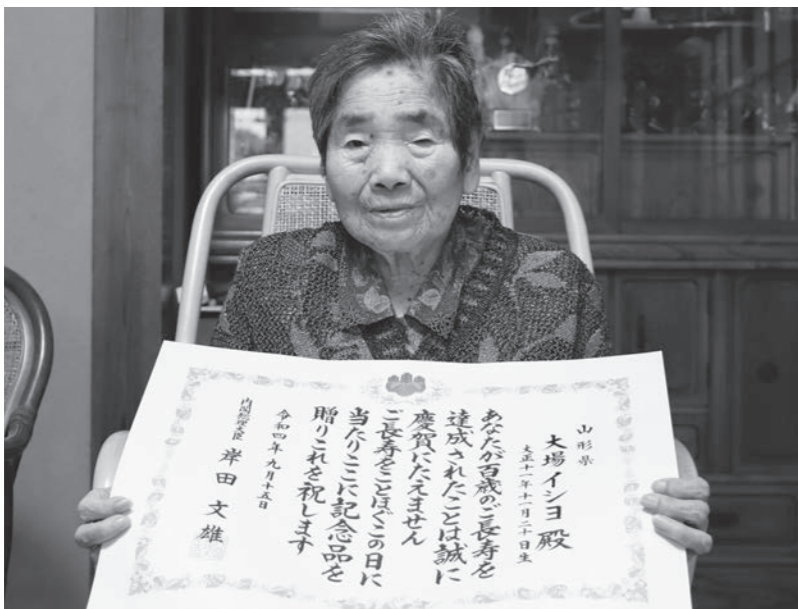 山形県
大場イシヨ殿
大正十一年十一月二十日生
あなたが百歳のご長寿を
達成されたことは誠に
慶賀にたえません
ご長寿をことほぐこの日に
当たりここに記念品を
贈りこれを祝します
令和四年九月十五日
内閣総理大臣 岸田文雄